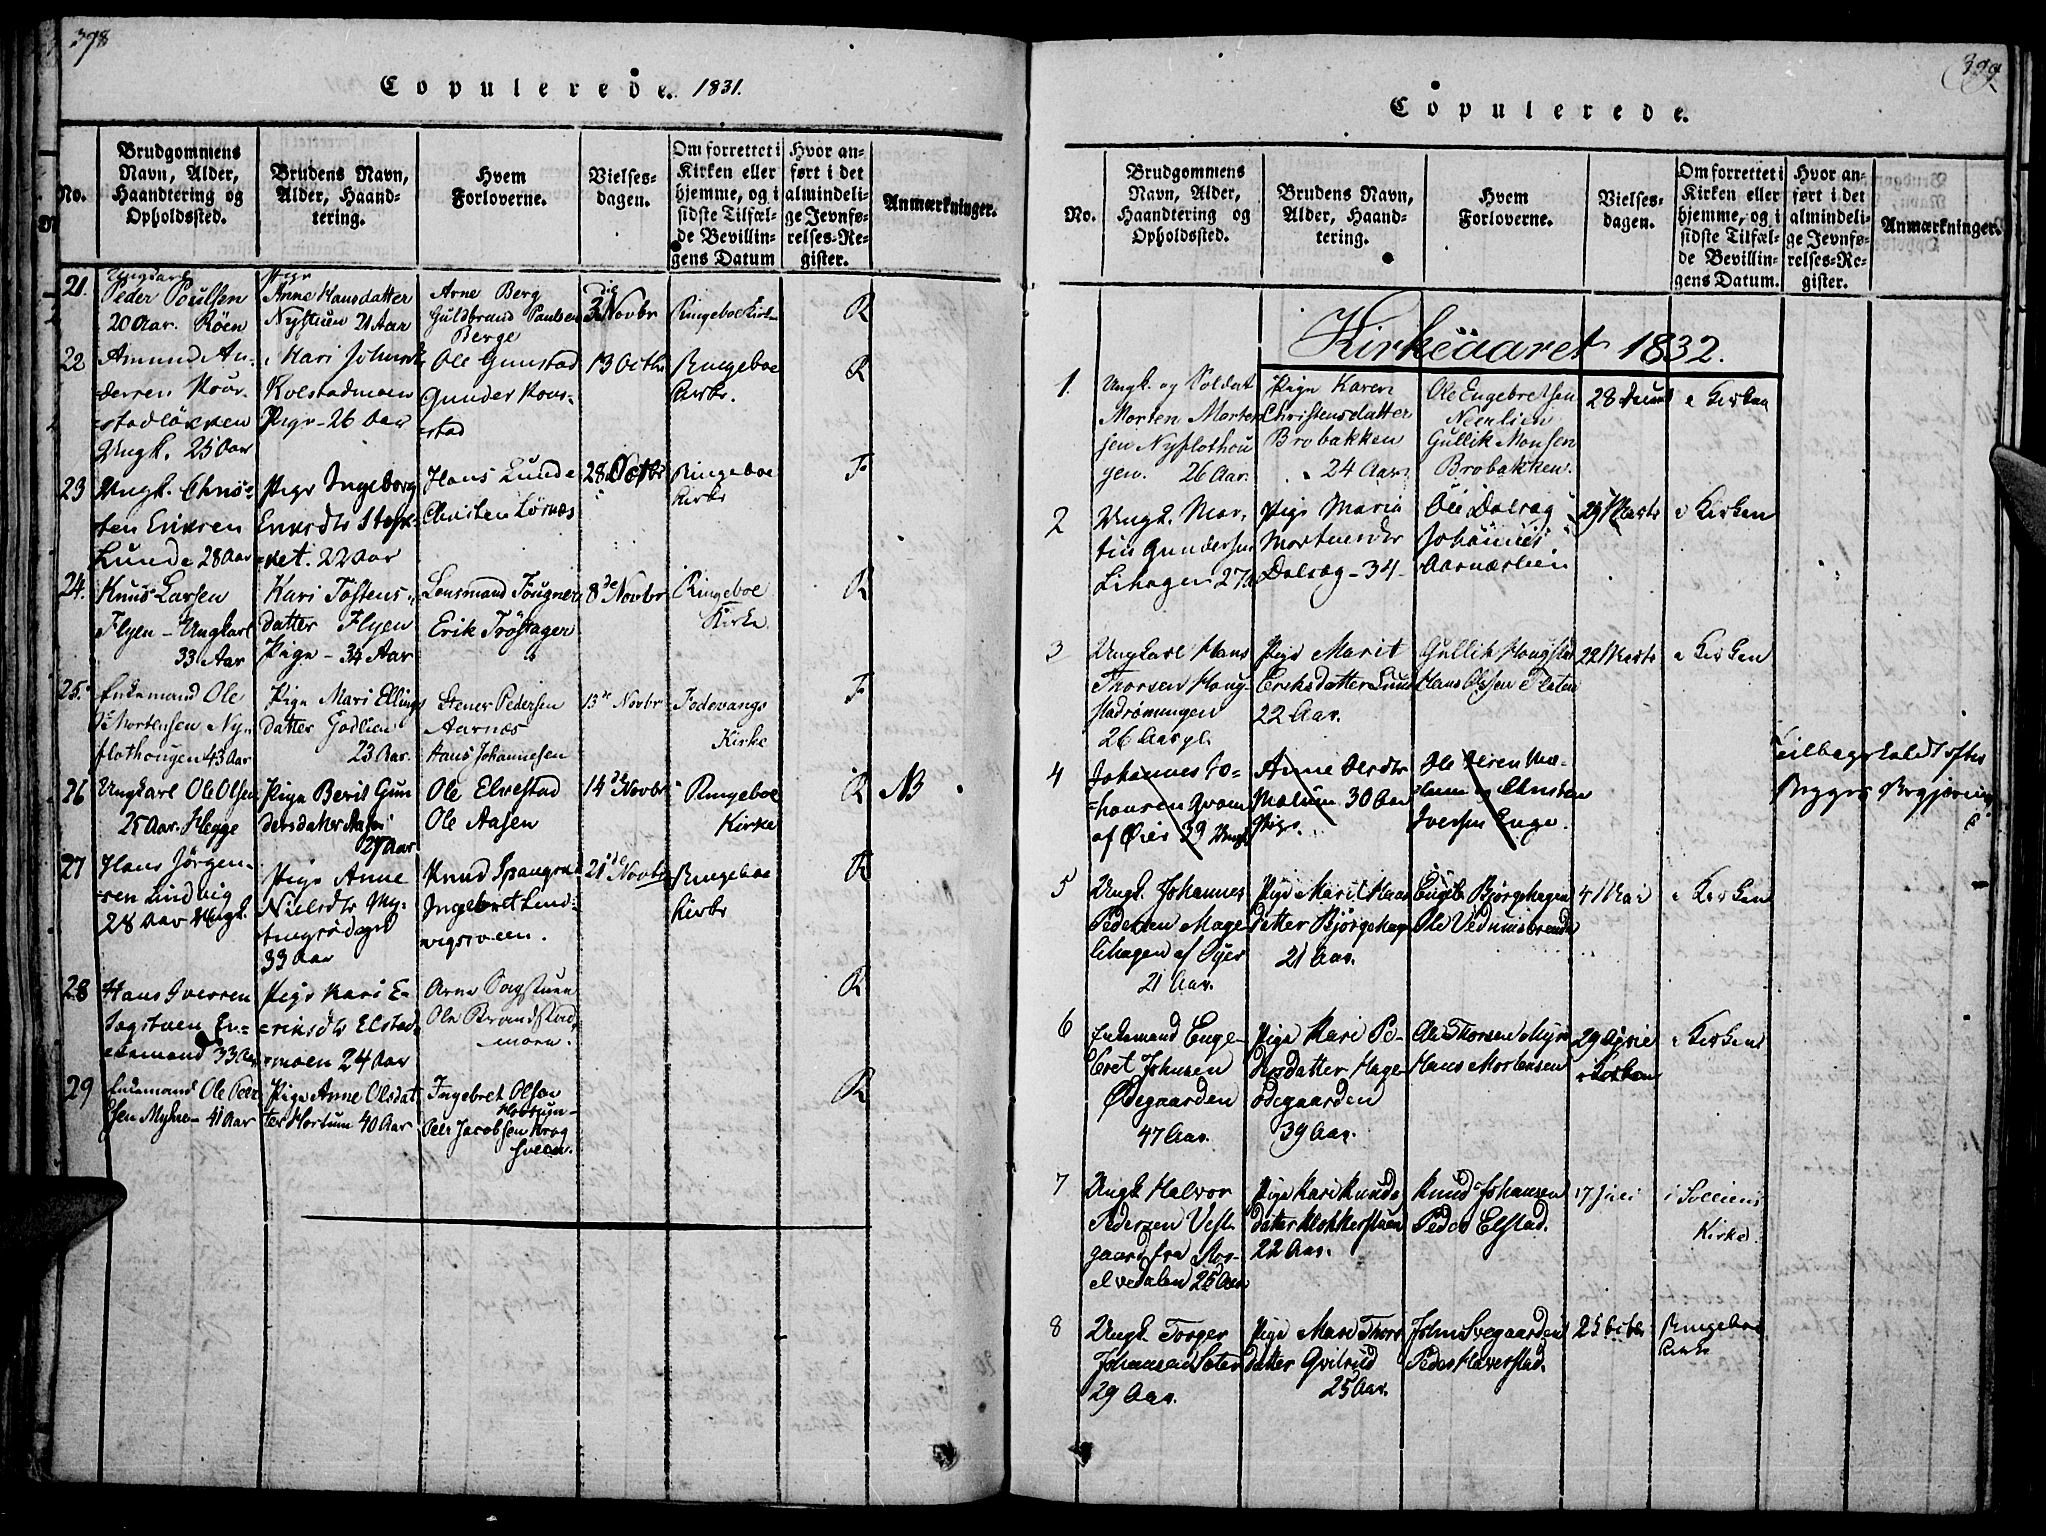 398
Copulerede. 1831.
No.
Brudgommens
Navn, Alder,
Haandtering og
Opholdssted.
Brudens Navn,
Alder, Haand-
tering.
Hvem
Forloverne.
Vielses-
dagen.
Om forrettet i
Kirken eller
hjemme, og i
sidste Tilfæl-
de Bevillin-
gens Datum
Hvor an-
ført i det
almindeli-
ge Jevnfø-
relses-Re-
gister.
Anmærkninger.
21.
Ungkarl
Peder Poulsen
20 Aar. Röen
Pige
Anne Hansdatter
Nystuen 21 Aar
Arne Berg
Guldbrand Paulsen
Berge
3 Novbr
Ringeboe Kirke
R
22
Amund An-
stadlökken
Ungk. 25 Aar
Mari Johnsd
Kolstadmoen
Pige - 26 Aar
Ole Gunstad
Gunder
stad
13 Octbr
Ringeboe
Kirke.
R
23
Ungk. Chris-
ten Ericsen
Lunde 28 Aar
Pige Ingeborg
22 Aar
Hans Lunde
Christen
28 Octbr
Ringeboe
Kirke
F
24.
Knud Larsen
Flyen - Ungkarl
33 Aar
Kari Tostens-
datter Flyen
Pige - 34 Aar
Lensmand Fougner
Erik Tröstager
8de Novbr
Ringeboe
Kirke.
R
25.
Enkemand Ole
Mortensen Ny-
flothougen 43 Aar
Pige Mari Ellings
datter Godlien
23 Aar.
Stener Pedersen
Aarnæs
Hans Johannesen
13de Novbr
Fodevangs
Kirke
F
26
Ungkarl Ole Olsen
25 Aar. Hegge
Pige Berit Gun
dersdatter Aasen
29 Aar
Ole Elvestad
Ole Aasen
14de Novbr
Ringeboe
Kirke
R NB
27
Hans Jörgen-
sen Lindvig
28 Aar Ungk.
Pige Anne
Nielsdtr My-
33 Aar
Knud
Ingebret Lind-
vigsveen.
21de Novbr
Ringeboe
Kirke
R
28
Hans Iversen
Sagstuen En-
kemand 33 Aar
Pige Kari E-
riksdtr Elstad-
moen 24 Aar
Arne Sagstuen
Ole Brandstad-
moen.
R
29
Enkemand Ole Peder
sen Myhre - 41 Aar
Pige Anne Olsdat
ter Hortum 40 Aar
Ingebret Olsen
Peder Jacobsen Krog
sveen.
R
399
Copulerede.
No.
Brudgommens
Navn, Alder,
Haandtering og
Opholdssted.
Brudens Navn,
Alder, Haand-
tering.
Hvem
Forloverne.
Vielses-
dagen.
Om forrettet i
Kirken eller
hjemme, og i
sidste Tilfæl-
de Bevillin-
gens Datum.
Hvor an-
ført i det
almindeli-
ge Jevnfø-
relses-Re-
gister.
Anmærkninger.
Kirkeaaret 1832.
1.
Ungk. og Soldat
Morten Morten
sen Nyflothou
gen. 26 Aar.
Pige Karen
Christensdatter
Brobakken
24 Aar.
Ole Engebretsen
Neerlien
Gullik Monsen
Brobakken.
28
i Kirken
2
Ungk. Mor-
tin Gundersen
Lihagen 27 Aar
Pige Maria
Mortensdtr
Dalsæg - 34 -
Ole Dalsæg
Johannes
Aarnæslien
29 Marts
i Kirken
3
Ungkarl Hans
Thorsen Houg-
stadrönningen
26 Aar gl.
Pige Marit
Eriksdatter Lund
22 Aar.
Gullik Hougstad
Hans Olsen Platen
22 Marts
i Kirken
4
Johannes Jo-
hansen
af Öier 33 Ungk.
Anne
Mælum 30 Aar
Pige.
Ole Iversen Mæ-
lum og Christen
Iversen Enge.
Tilbagekaldt efter
Begges Begjæring
5
Ungk. Johannes
Pedersen Mage-
lihagen af Öyer
21 Aar.
Pige Marit Hans
datter Björgehagen
21 Aar.
Engebr Björgehagen
Ole Vedumsbrenden
4 Mai
i Kirken
6
Enkemand Enge-
bret Johnsen
Ödegaarden
47 Aar.
Pige Kari Pe-
dersdatter Hage-
ödegaarden
39 Aar.
Ole Thorsen Myre
Hans Mortensen
29
i Kirken
7
Ungk. Halvor
Pedersen Vest-
gaard fra Stor-
elvedalen 25 Aar
Pige Kari Knuds
datter Klokkerstuen
22 Aar.
Knud Johansen
Peder Elstad.
17 Juli
i Solliens
Kirke.
8
Ungk. Torger
Johannesen Sater
29 Aar.
Pige Mari Thors
datter Qvilrud
25 Aar.
John Svegaarden
Peder Haverstad.
25 Octbr
Ringeboe
Kirke